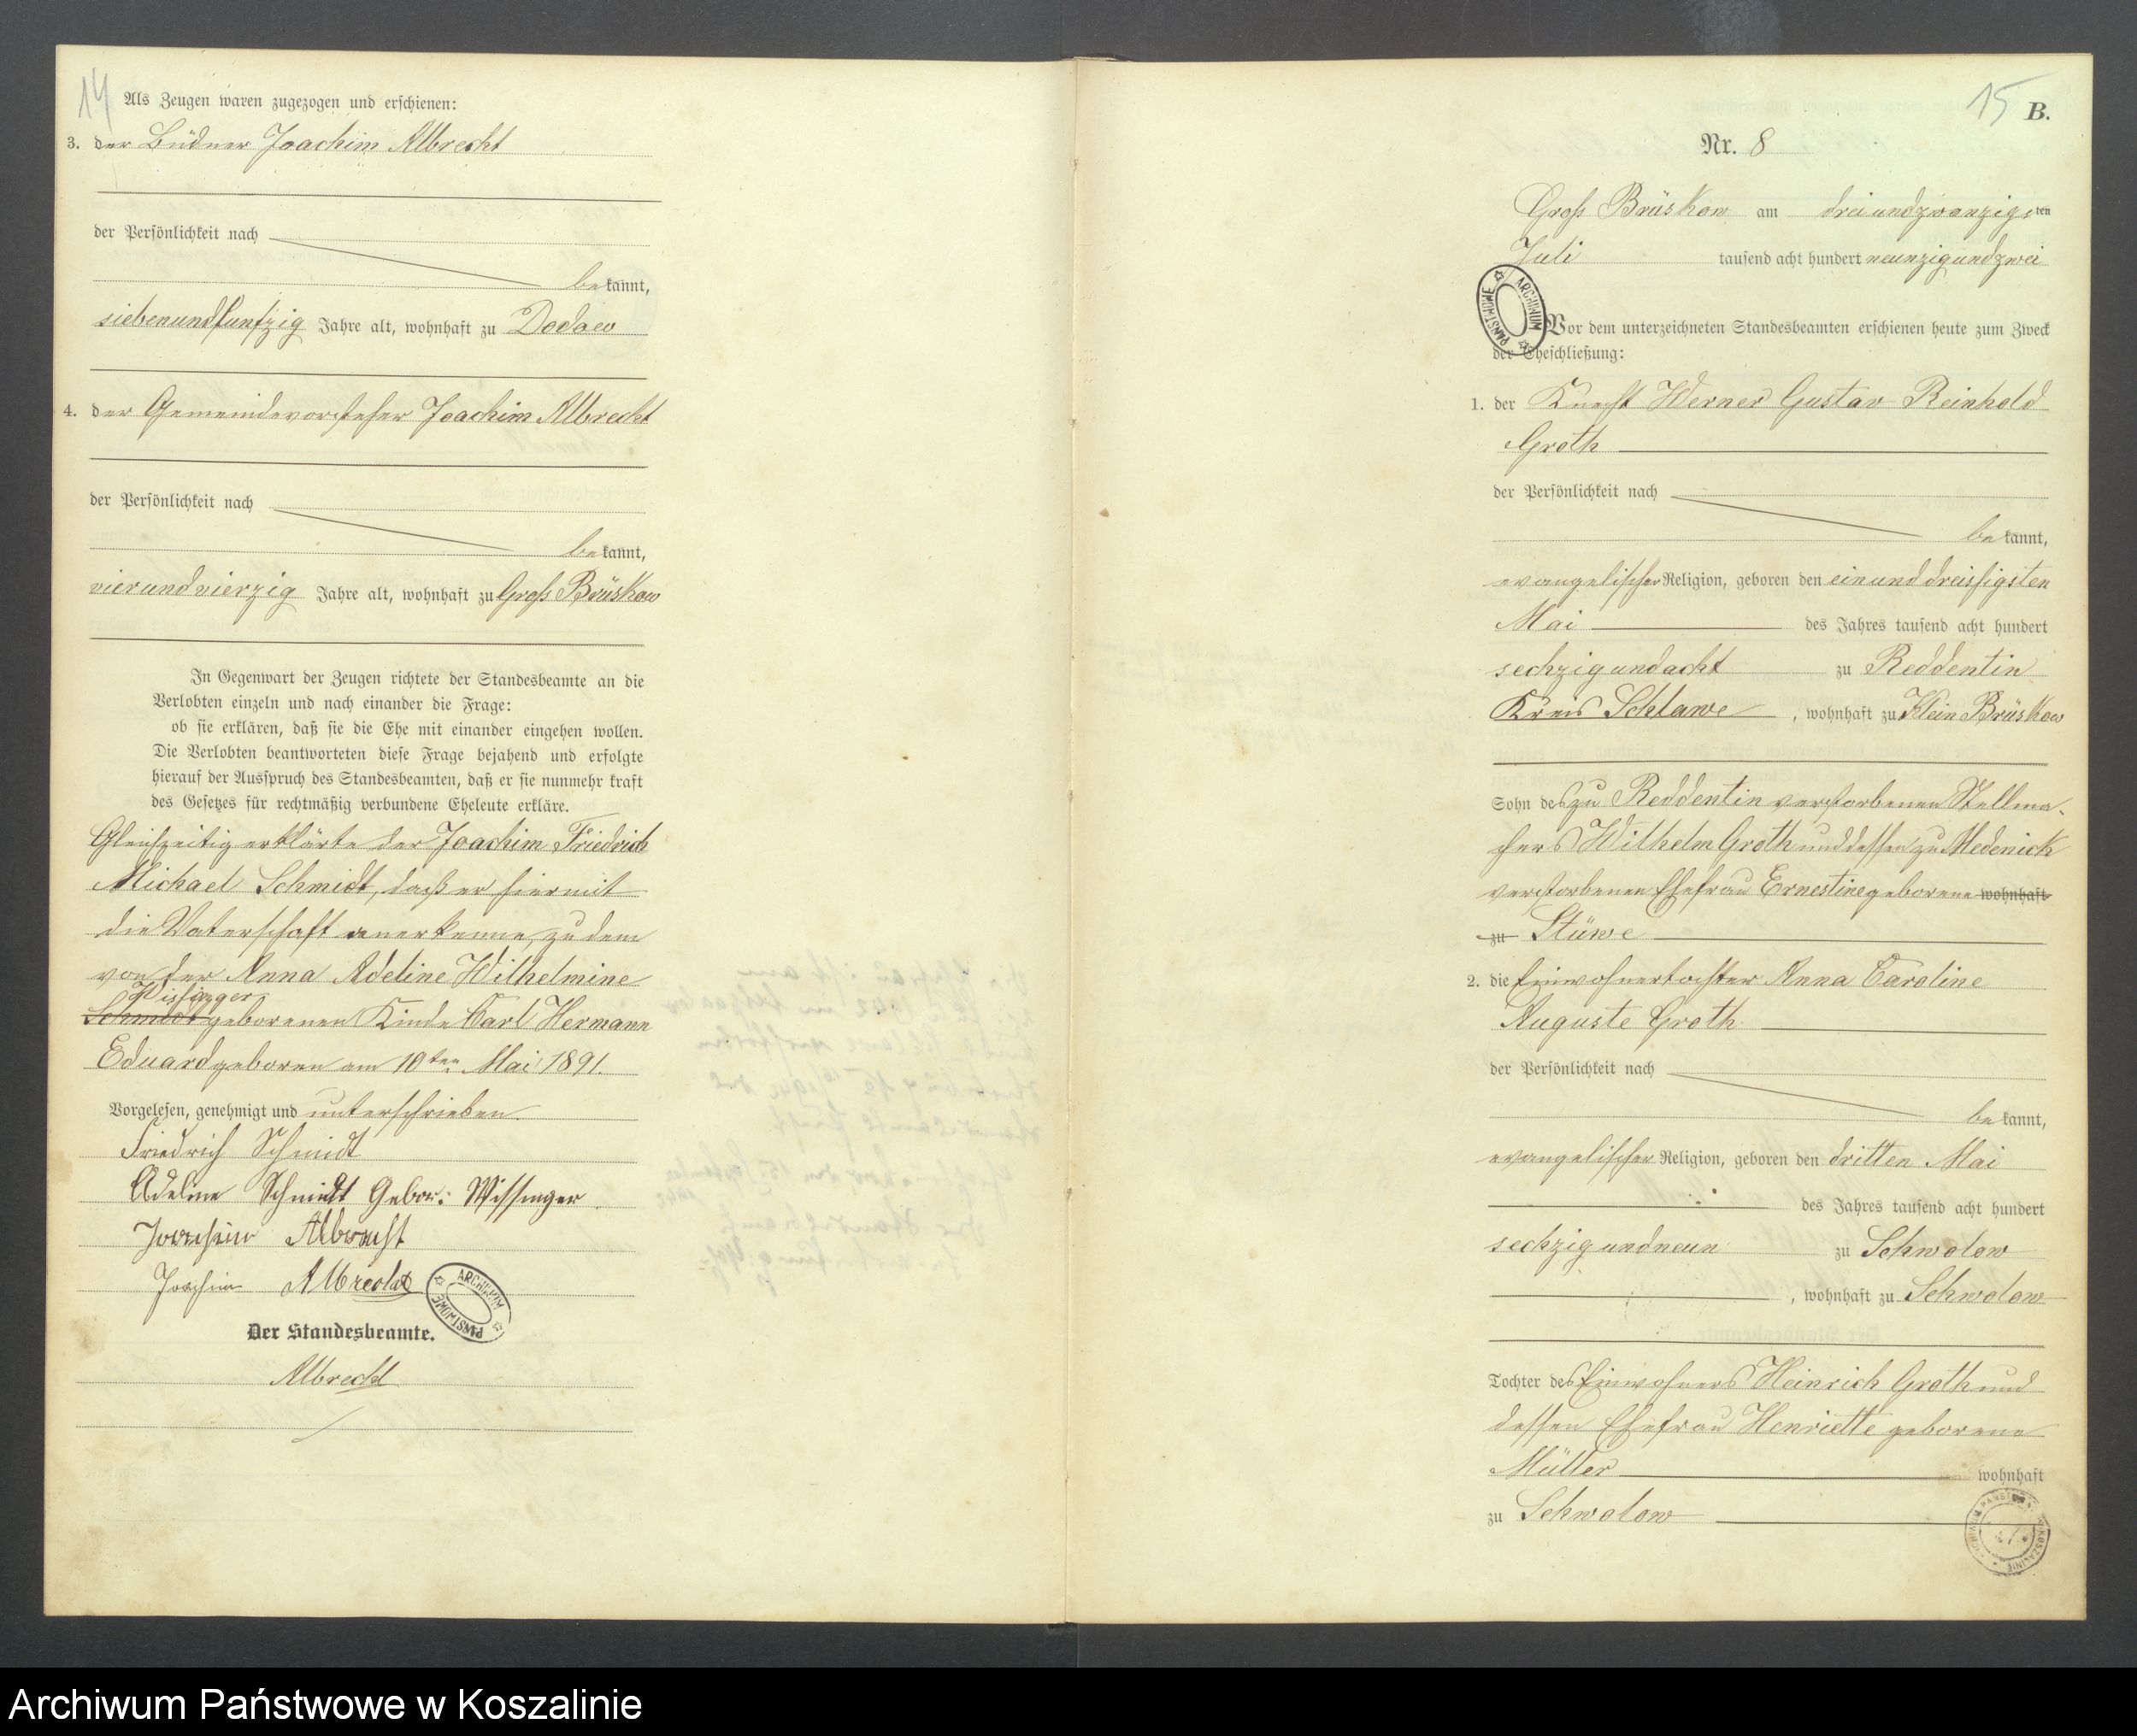 14
Als Zeugen waren zugezogen und erschienen:
3. der Büdner Joachim Albrecht
der Persönlichkeit nach
bekannt,
siebenundfunfzig Jahre alt, wohnhaft zu Dodow
4. der Gemeindevorsteher Joachim Albrecht
der Persönlichkeit nach
bekannt,
vierundvierzig Jahre alt, wohnhaft zu Groß Brüskow
In Gegenwart der Zeugen richtete der Standesbeamte an die
Verlobten einzeln und nach einander die Frage:
ob sie erklären, daß sie die Ehe mit einander eingehen wollen.
Die Verlobten beantworteten diese Frage bejahend und erfolgte
hierauf der Ausspruch des Standesbeamten, daß er sie nunmehr kraft
des Gesetzes für rechtmäßig verbundene Eheleute erkläre.
Gleichzeitig erklärte der Joachim Friedrich
Michael Schmidt, daß er hiermit
die Vaterschaft anerkenne, zu dem
von der Anna Adeline Wilhelmine
Wissinger
Schmidt geborenen Kinde Carl Hermann
Eduard geboren am 10ten Mai 1891.
Vorgelesen, genehmigt und unterschrieben.
Friedrich Schmidt
Adeline Schmidt Gebor: Wissinger
Joachim Albrecht
Joachim Albrecht
ARCHIWUM PAŃSTWOWE
Der Standesbeamte.
Albrecht
15 B.
Nr. 8
Groß Brüskow am dreiundzwanzigsten
Juli tausend acht hundert neunzigundzwei
ARCHIWUM PAŃSTWOWE
Vor dem unterzeichneten Standesbeamten erschienen heute zum Zweck
der Eheschließung:
1. der Knecht Werner Gustav Reinhold
Groth
der Persönlichkeit nach
bekannt,
evangelischer Religion, geboren den einunddreissigsten
Mai des Jahres tausend acht hundert
sechzigundacht zu Reddentin
Kreis Schlawe, wohnhaft zu Klein Brüskow
Sohn des zu Reddentin verstorbenen Stellma-
chers Wilhelm Groth und dessen zu Medenick
verstorbenen Ehefrau Ernestine geborene wohnhaft
zu Stüwe
2. die Einwohnertochter Anna Caroline
Auguste Groth
der Persönlichkeit nach
bekannt,
evangelischer Religion, geboren den dritten Mai
des Jahres tausend acht hundert
sechzigundneun zu Schwolow
, wohnhaft zu Schwolow
Tochter des Einwohners Heinrich Groth und
dessen Ehefrau Henriette geborene
Müller wohnhaft
zu Schwolow
Archiwum Państwowe w Koszalinie